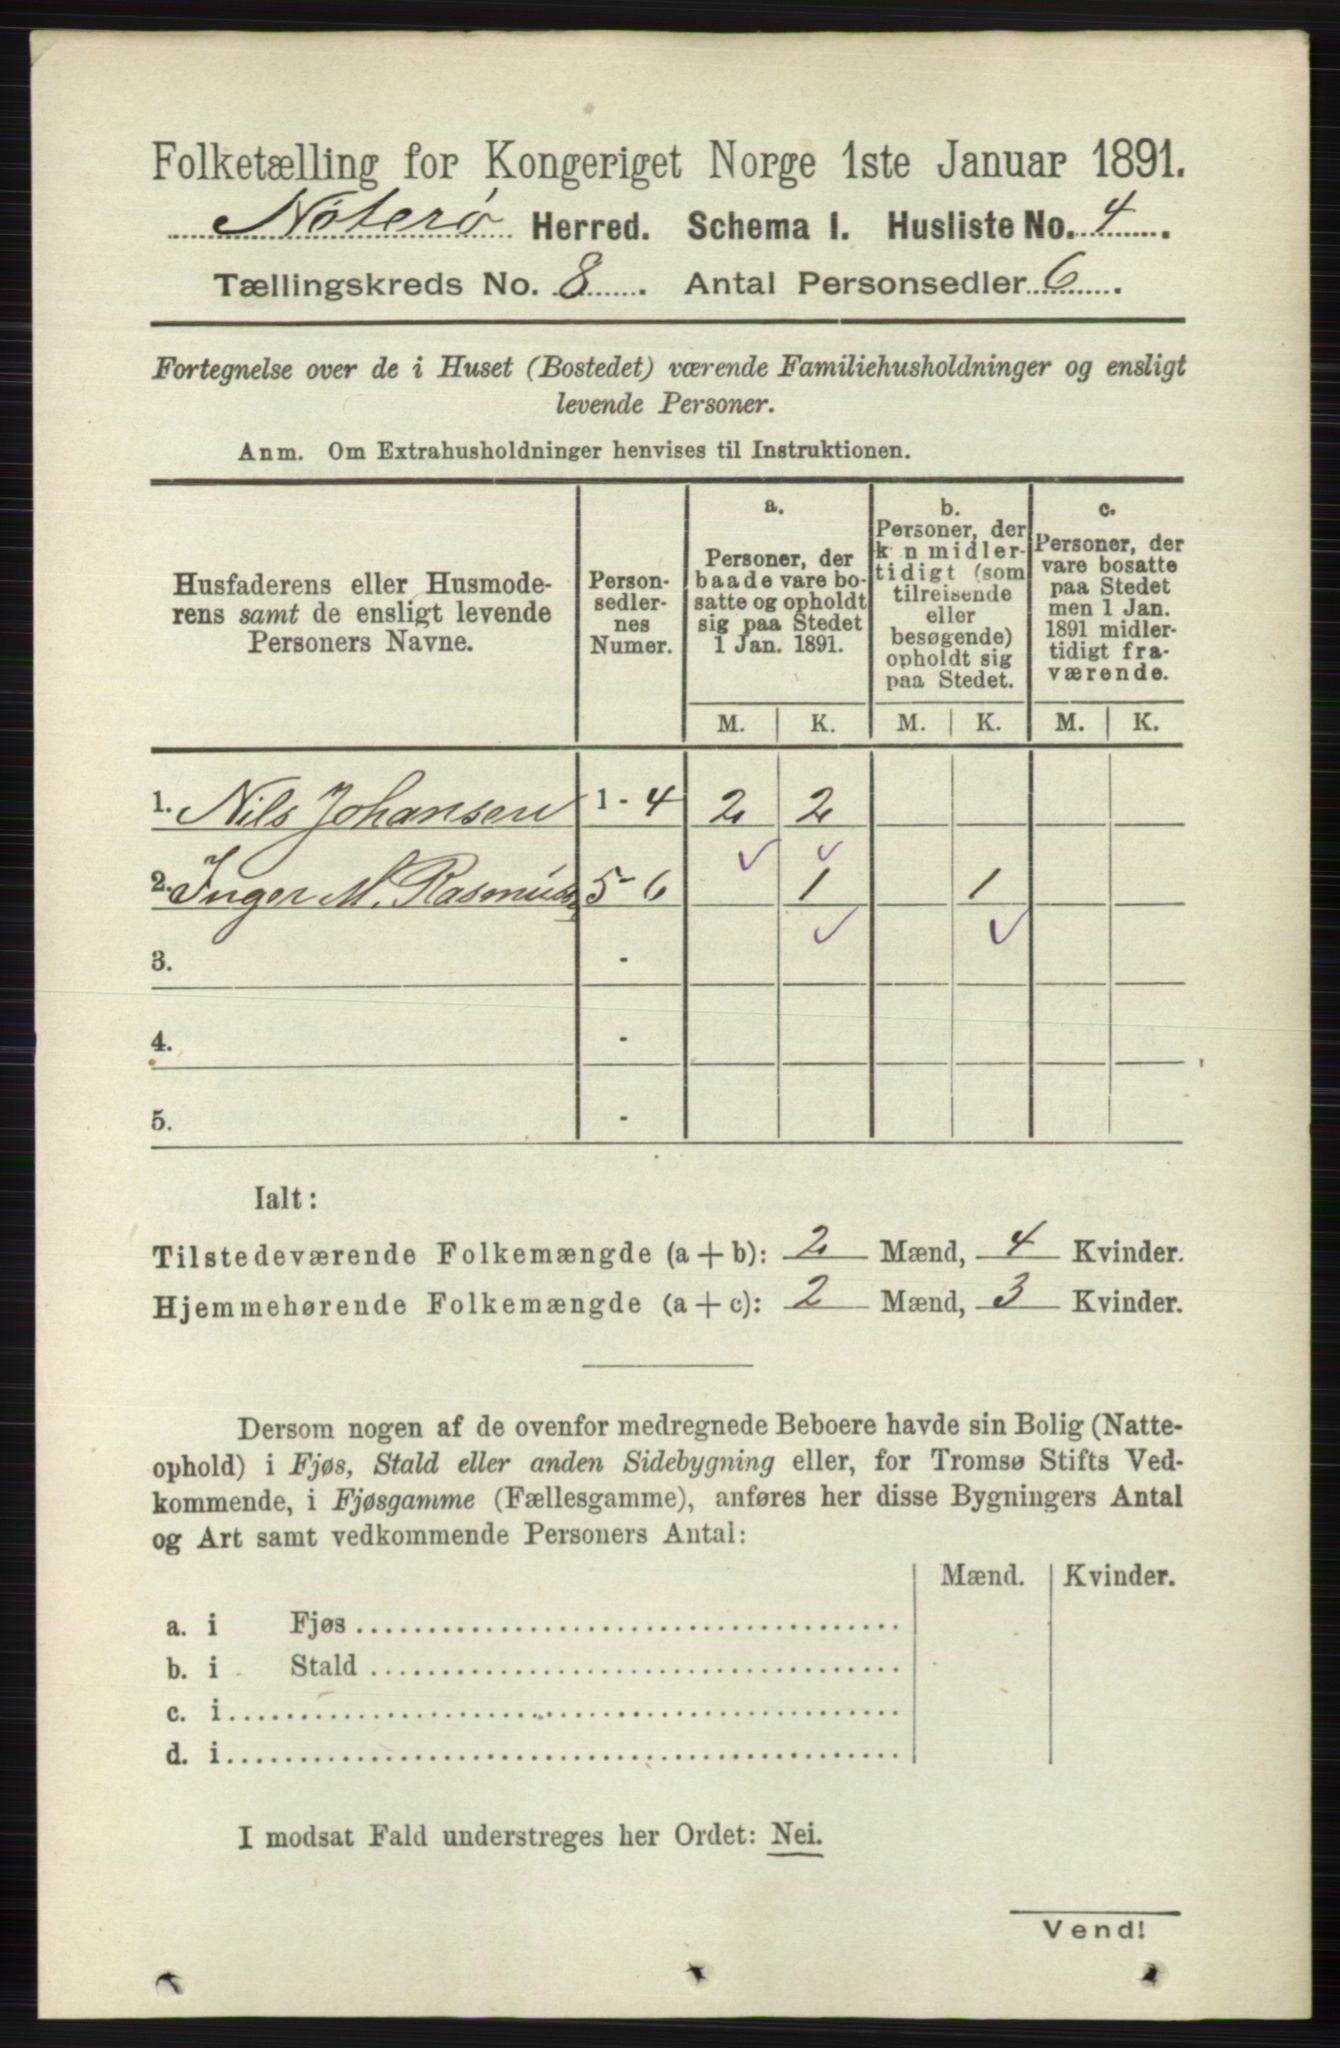 Folketælling for Kongeriget Norge 1ste Januar 1891.
Nøterø Herred. Schema 1. Husliste No. 4.
Tællingskreds No. 8. Antal Personsedler 6.
Fortegnelse over de i Huset (Bostedet) værende Familiehusholdninger og ensligt
levende Personer.
Anm. Om Extrahusholdninger henvises til Instruktionen.
Husfaderens eller Husmode-
rens samt de ensligt levende
Personers Navne.
Person-
sedler-
nes
Numer.
a.
Personer, der
baade vare bo-
satte og opholdt
sig paa Stedet
1 Jan. 1891.
b.
Personer, der
k n midler-
tidigt (som
tilreisende
eller
besøgende)
opholdt sig
paa Stedet.
c.
Personer, der
vare bosatte
paa Stedet
men 1 Jan.
1891 midler-
tidigt fra-
værende.
M. K. M. K. M. K.
1. Nils Johansen 1 - 4 2 2
2. Inger M. Rasmus 5 - 6 1 1
3. -
4. -
5. -
Ialt:
Tilstedeværende Folkemængde (a + b): 2 Mænd, 4 Kvinder.
Hjemmehørende Folkemængde (a + c): 2 Mænd, 3 Kvinder.
Dersom nogen af de ovenfor medregnede Beboere havde sin Bolig (Natte-
ophold) i Fjøs, Stald eller anden Sidebygning eller, for Tromsø Stifts Ved-
kommende, i Fjøsgamme (Fællesgamme), anføres her disse Bygningers Antal
og Art samt vedkommende Personers Antal:
Mænd. Kvinder.
a. i Fjøs
b. i Stald
c. i
d. i
I modsat Fald understreges her Ordet: Nei.
Vend!